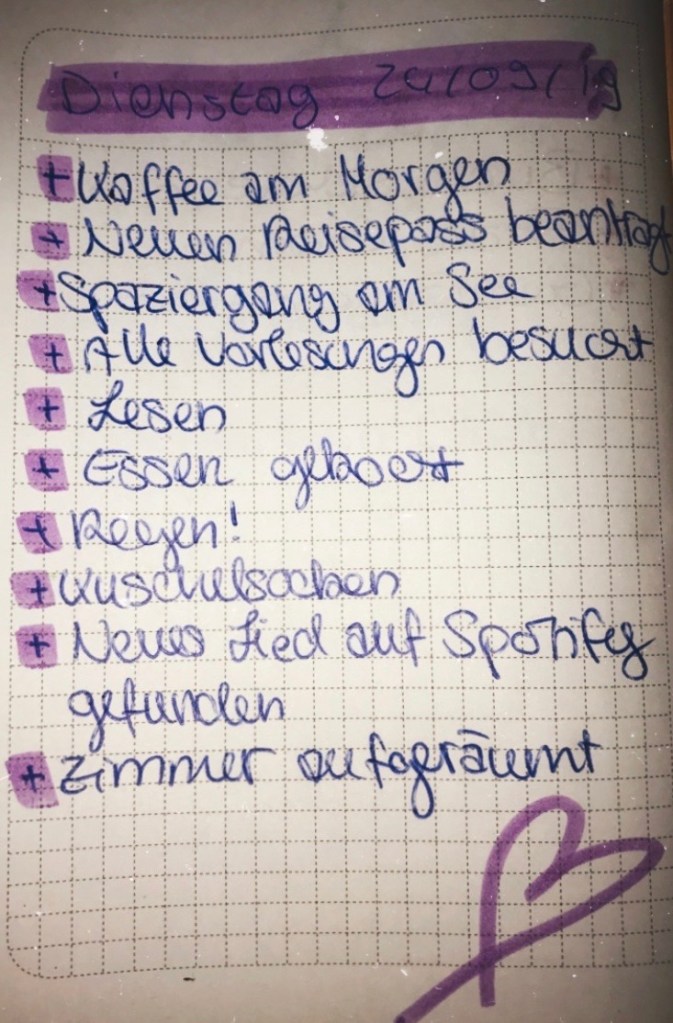 Dienstag 24/09/19
+ Kaffee am Morgen
+ Neuen Reisepass beantragt
+ Spaziergang am See
+ Alle Vorlesungen besucht
+ Lesen
+ Essen gekocht
+ Regen!
+ Kuschelsocken
+ Neues Lied auf Spotify
gefunden
+ Zimmer aufgeräumt